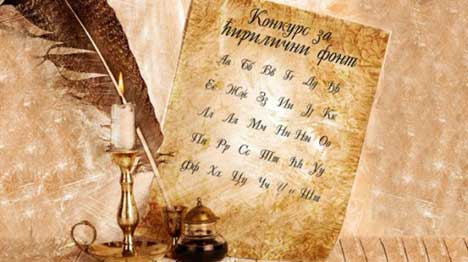 Конкурс за
ћирилични фонт
Аа Бб Вв Гг Дд Ђђ
Ее Жж Зз Ии Јј Кк
Лл Љљ Мм Нн Њњ Оо
Пп Рр Сс Тт Ћћ Уу
Фф Хх Цц Чч Џџ Шш